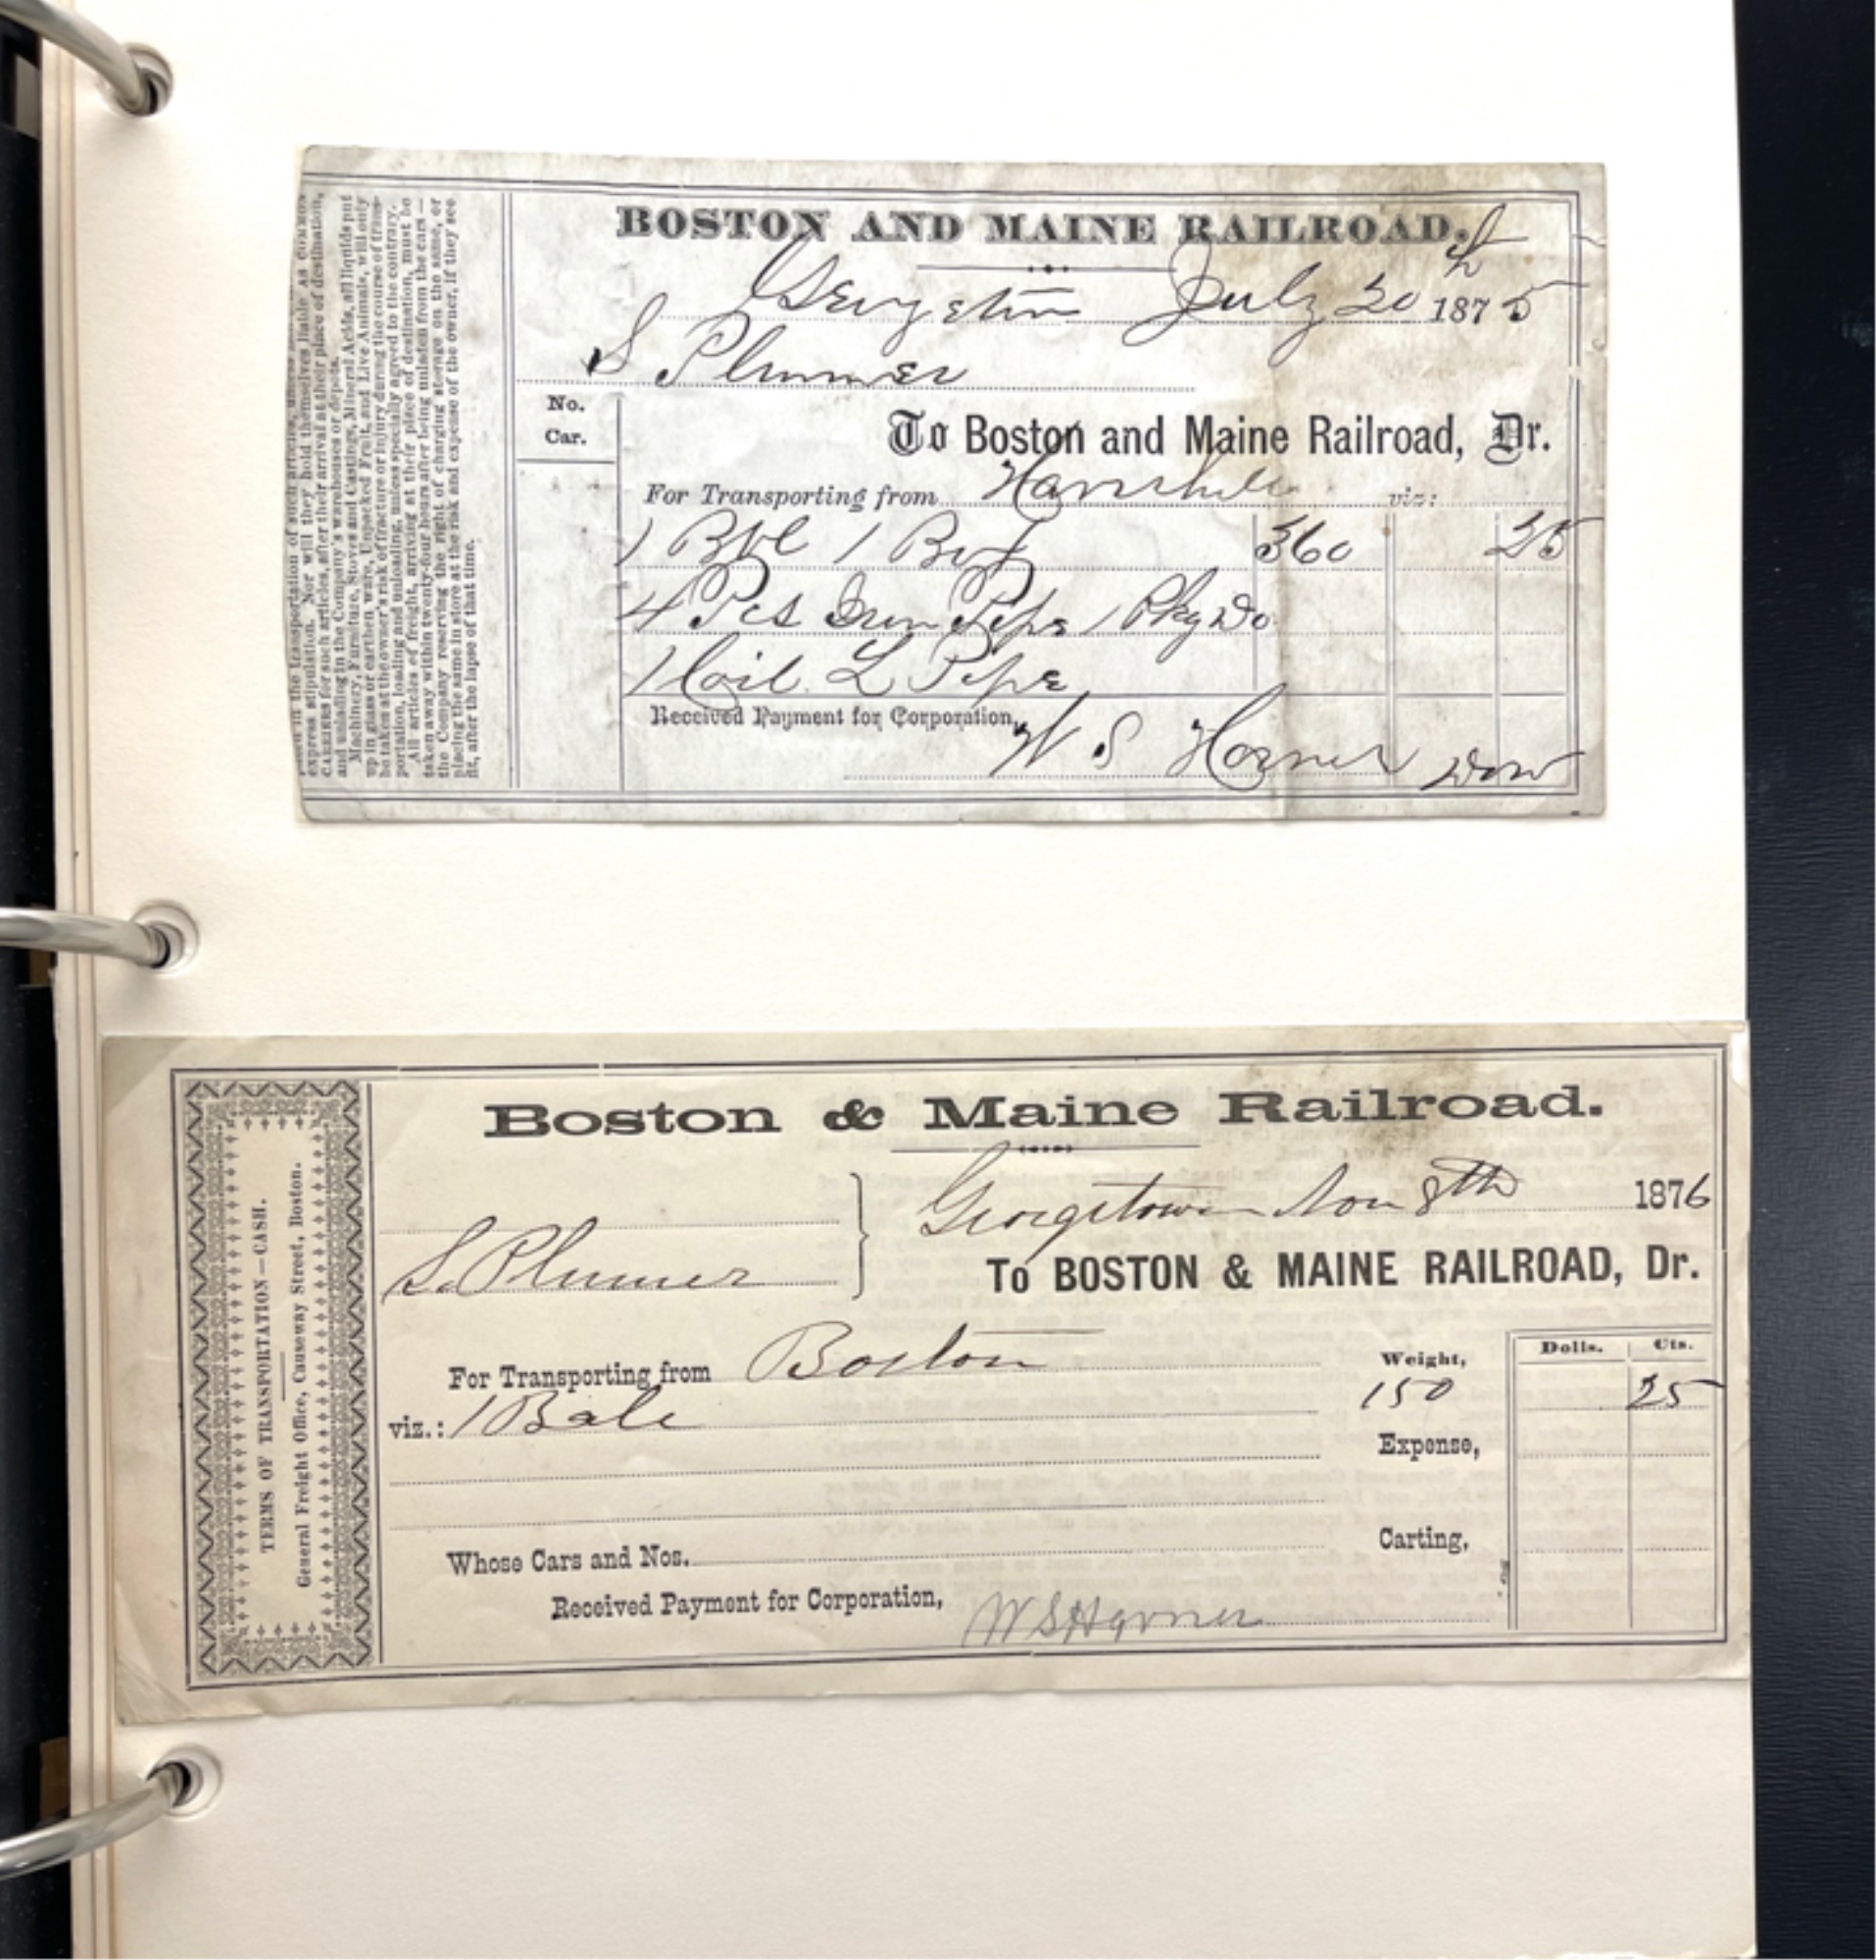 BOSTON AND MAINE RAILROAD.
July 20 1875
S Plummer
No.
Car.
To Boston and Maine Railroad, Dr.
For Transporting from Haverhill viz:
1 Bbl 1 Box 360 25
4 Pcs Iron Pipe 1 Pkg Do
1 Coil L Pipe
Received Payment for Corporation,
W S Horner
in the transportation of such articles,
express stipulation. Nor will they hold themselves liable as COMMON
CARRIERS for such articles, after their arrival at their place of destination,
and unlading in the Company's warehouses or depots.
Machinery, Furniture, Stoves and Castings, Mineral Acids, all liquids put
up in glass or earthen ware, Unpacked Fruit, and Live Animals, will only
be taken at the owner's risk of fracture or injury during the course of trans-
portation, loading and unloading, unless specially agreed to the contrary.
All articles of freight, arriving at their place of destination, must be
taken away within twenty-four hours after being unladen from the cars—
the Company reserving the right of charging storage on the same, or
placing the same in store at the risk and expense of the owner, if they see
fit, after the lapse of that time.
Boston & Maine Railroad.
Georgetown Nov 8th 1876
S. Plumer
To BOSTON & MAINE RAILROAD, Dr.
Dolls. Cts.
For Transporting from Boston Weight,
viz.: 1 Bale 150 25
Expense,
Carting,
Whose Cars and Nos.
Received Payment for Corporation,
W S Horner
TERMS OF TRANSPORTATION—CASH.
General Freight Office, Causeway Street, Boston.